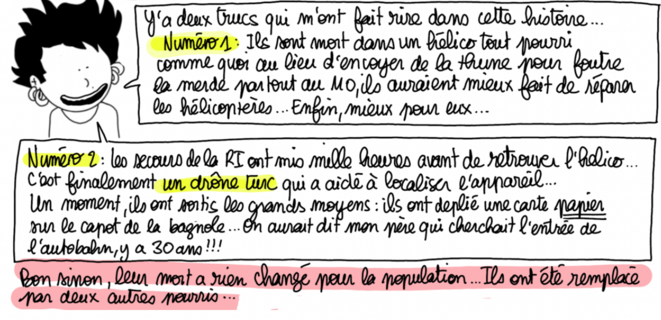 Y'a deux trucs qui m'ont fait rire dans cette histoire...
Numéro 1 : Ils sont mort dans un hélico tout pourri
comme quoi au lieu d'envoyer de la thune pour foutre
la merde partout au MO, ils auraient mieux fait de réparer
les hélicoptères... Enfin, mieux pour eux...
Numéro 2 : les secours de la RI ont mis mille heures avant de retrouver l'hélico...
C'est finalement un drône turc qui a aidé à localiser l'appareil...
Un moment, ils ont sortis les grands moyens : ils ont deplié une carte papier
sur le capot de la bagnole... On aurait dit mon père qui cherchait l'entrée de
l'autobahn, y a 30 ans !!!
Bon sinon, leur mort a rien changé pour la population... Ils ont été remplacé
par deux autres pourris...